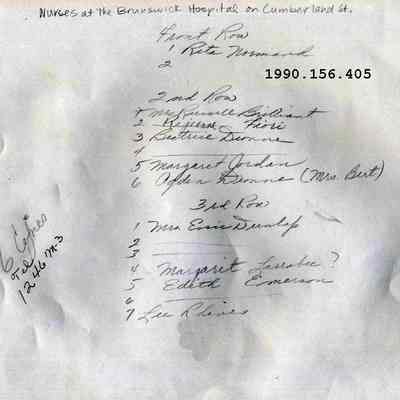 Nurses at the Brunswick Hospital on Cumberland St.
Front Row
1 Rita Normand
2
1990.156.405
2nd Row
1 Mrs Russell Brilliant
2 Regina Fiori
3 Beatrice Dionne
4
5 Margaret Jordan
6 Dionne (Mrs. Bert)
3rd Row
1 Mrs Dunlap
2
3
4 Margaret Larrabee ?
5 Edith Emerson
6
7 Lee
6 Copies
1246 M-3